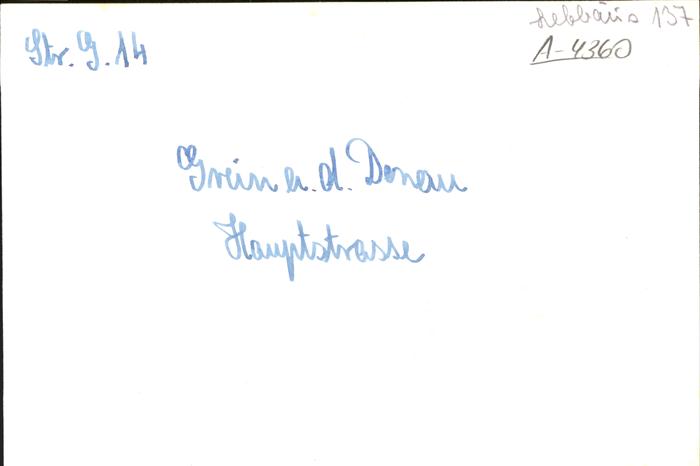 Str. G. 14
137
A-4360
Grein a. d. Donau
Hauptstrasse